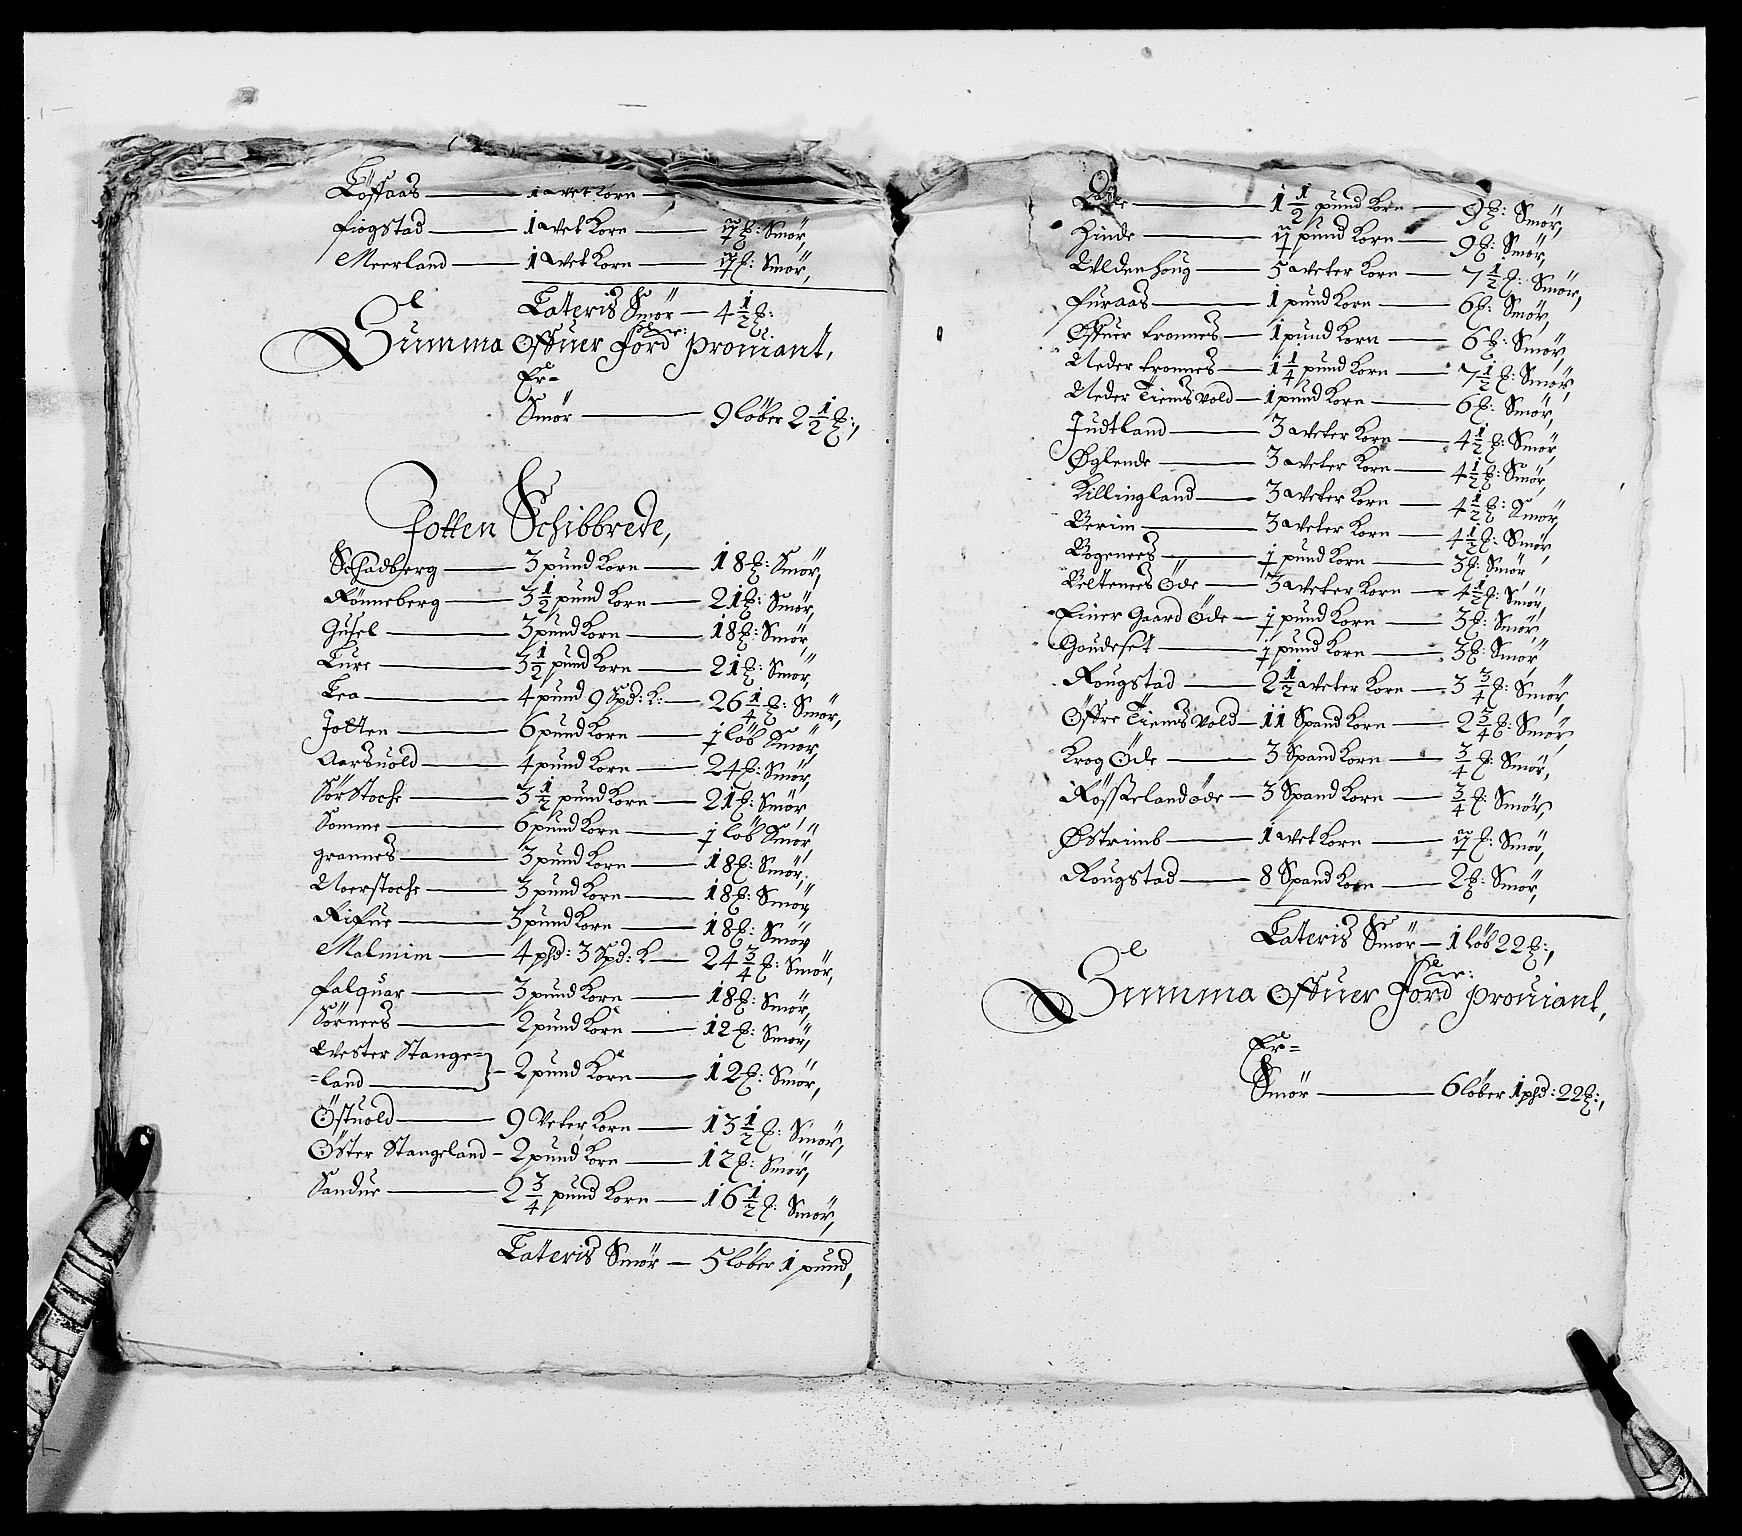 Löffaas — 1 Vet Korn —
fiogstad — 1 Vet Korn — 1½ ℔: Smör,
Meerland — 1 Vet Korn — 1½ ℔: Smör,
Lateris Smör — 4 1/2 ℔:
Summa Offuer forschr: Prouiant,
Er=
Smör — 9 löber 2 1/2 ℔:,
Jotten Schibbrede,
Schadberg — 3 pund Korn — 18 ℔: Smör,
Rönneberg — 3 1/2 pund Korn — 21 ℔: Smör,
Gusel — 3 pund Korn — 18 ℔: Smör,
Lure — 3 1/2 pund Korn — 21 ℔: Smör,
Lea — 4 pund 9 Spd: K: — 26 1/4 ℔: Smör,
Jotten — 6 pund Korn — 1 löb Smör,
Aarsuold — 4 pund Korn — 24 ℔: Smör,
Sörstoche — 3 1/2 pund Korn — 21 ℔: Smör,
Somme — 6 pund Korn — 1 löb Smör,
grannes — 3 pund Korn — 18 ℔: Smör,
Noerstoche — 3 pund Korn — 18 ℔: Smör,
Rifue — 3 pund Korn — 18 ℔: Smör,
Malmim — 4 phd: 3 Spd: K — 24 3/4 ℔: Smör,
falquar — 3 pund Korn — 18 ℔: Smör,
Sörnees — 2 pund Korn — 12 ℔: Smör,
Wester Stange=
=land — 2 pund Korn — 12 ℔: Smör,
Östuold — 9 Veter Korn — 13 1/2 ℔: Smör,
Öster Stangeland — 2 pund Korn — 12 ℔: Smör,
Sandue — 2 3/4 pund Korn — 16 1/2 ℔: Smör,
Lateris Smör — 5 löber 1 pund,
1 1/2 pund Korn — 9 ℔: Smör,
Hinde — 1½ pund Korn — 9 ℔: Smör,
Uldenhoug — 5 Veter Korn — 7 1/2 ℔: Smör,
furaas — 1 pund Korn — 6 ℔: Smör,
Offuer tronnes — 1 pund Korn — 6 ℔: Smör,
Neder tronnes — 1 1/4 pund Korn — 7 1/2 ℔: Smör
Neder Tiensvold — 1 pund Korn — 6 ℔: Smör,
Judtland — 3 Veter Korn — 4 1/2 ℔: Smör,
Øglende — 3 Veter Korn — 4 1/2 ℔: Smör,
Killingland — 3 Veter Korn — 4 1/2 ℔: Smör,
Berim — 3 Veter Korn — 4 1/2 ℔: Smör
Bogenees — ½ pund Korn — 3 ℔: Smör
Beltenees Öde — 3 Veter Korn — 4 1/2 ℔: Smör,
Finer Gaard Öde — ½ pund Korn — 3 ℔: Smör,
Goudeset — ½ pund Korn — 3 ℔: Smör
Rougstad — 2 1/2 Veter Korn — 3 3/4 ℔: Smör,
Öffre Tiensvold — 11 Spand Korn — 2 3/4 ℔: Smör,
Krog Öde — 3 Spand Korn — 3/4 ℔: Smör,
Rösseland öde — 3 Spand Korn — 3/4 ℔: Smör,
Østrimb — 1 Vet Korn — 1½ ℔: Smör,
Rougstad — 8 Spand Korn — 2 ℔: Smör,
Lateris Smör — 1 löb 22 ℔:,
Summa Offuer forschr: Prouiant,
Er=
Smör — 6 löber 1 phd: 22 ℔:,